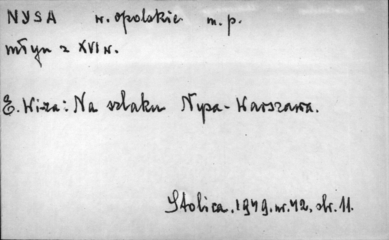 NYSA w. opolskie m. p.
młyn z XVI w.
E. Wiza: Na szlaku Nysa - Warszawa.
Stolica. 1979. nr. 42, str. 11.